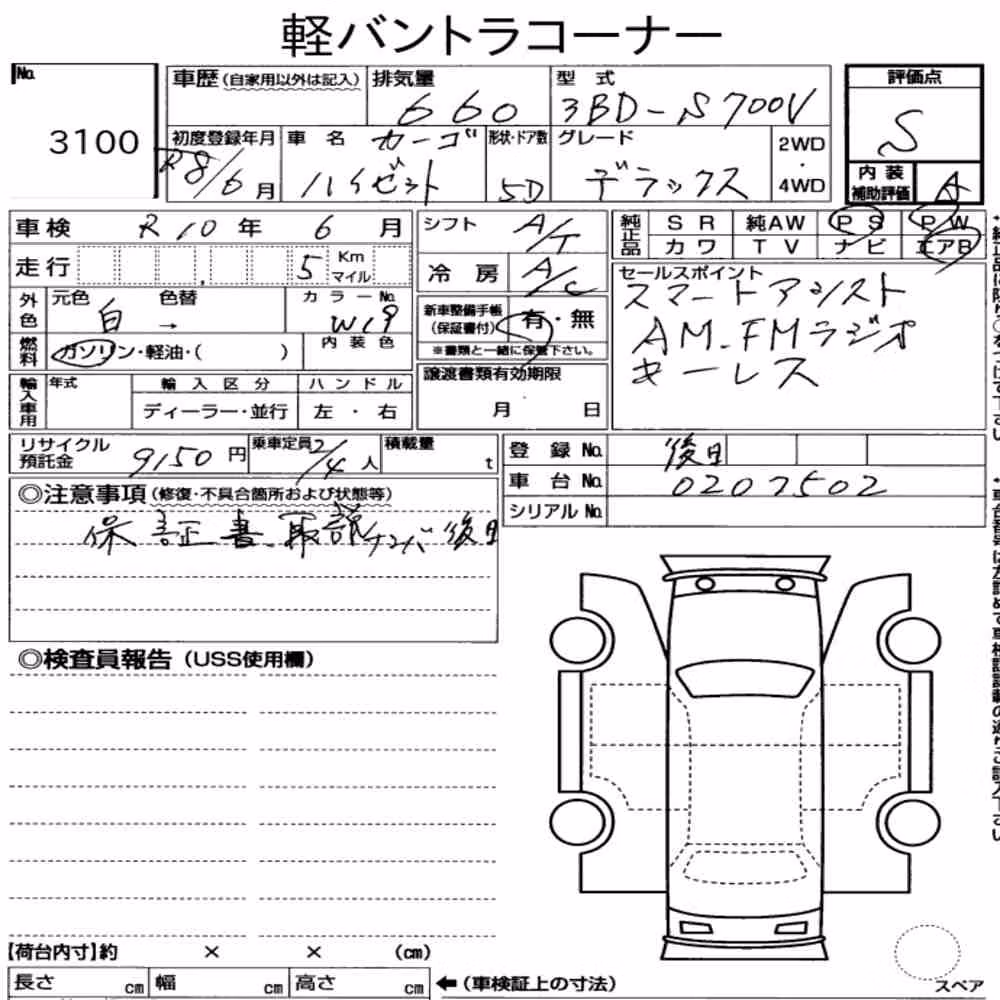 軽バントラコーナー
No. 3100
車歴 (自家用以外は記入) 排気量 660 型式 3BD-S700V
評価点 S
初度登録年月 R8/6月 車名 カーゴ ハイゼット 形状・ドア数 5D グレード デラックス 2WD・4WD
内装補助評価 A
車検 R10年 6月
走行 5 Km マイル
外色 元色 白 色替 → カラーNo. W19
燃料 ガソリン・軽油・( ) 内装色
輸入車用 年式 輸入区分 ハンドル
ディーラー・並行 左・右
シフト A/T
冷房 A/C
新車整備手帳 (保証書付) 有・無
※書類と一緒に保管下さい。
譲渡書類有効期限
月 日
純正品 SR 純AW PS PW
カワ TV ナビ エアB
セールスポイント
スマートアシスト
AM.FMラジオ
キーレス
リサイクル預託金 9150円 乗車定員 2/4人 積載量 t
登録No. 後日
車台No. 0207502
シリアルNo.
◎注意事項 (修復・不具合箇所および状態等)
保証書、取説 ナンバー後日
◎検査員報告 (USS使用欄)
【荷台内寸】約 × × (cm)
長さ cm 幅 cm 高さ cm ←(車検証上の寸法)
スペア